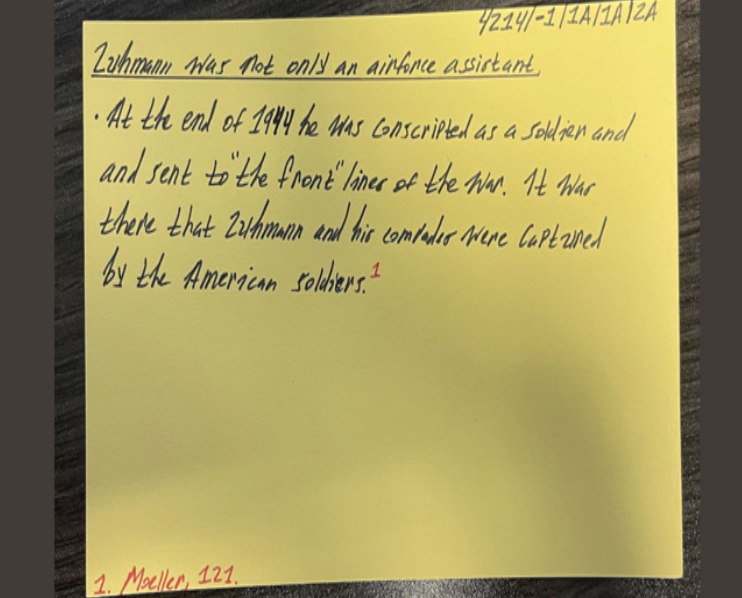 4214/-1/1A/1A/2A
Luhmann was not only an airforce assistant.
· At the end of 1944 he was conscripted as a soldier and
and sent to "the front" lines of the war. It was
there that Luhmann and his comrades were captured
by the American soldiers.1
1. Moeller, 121.